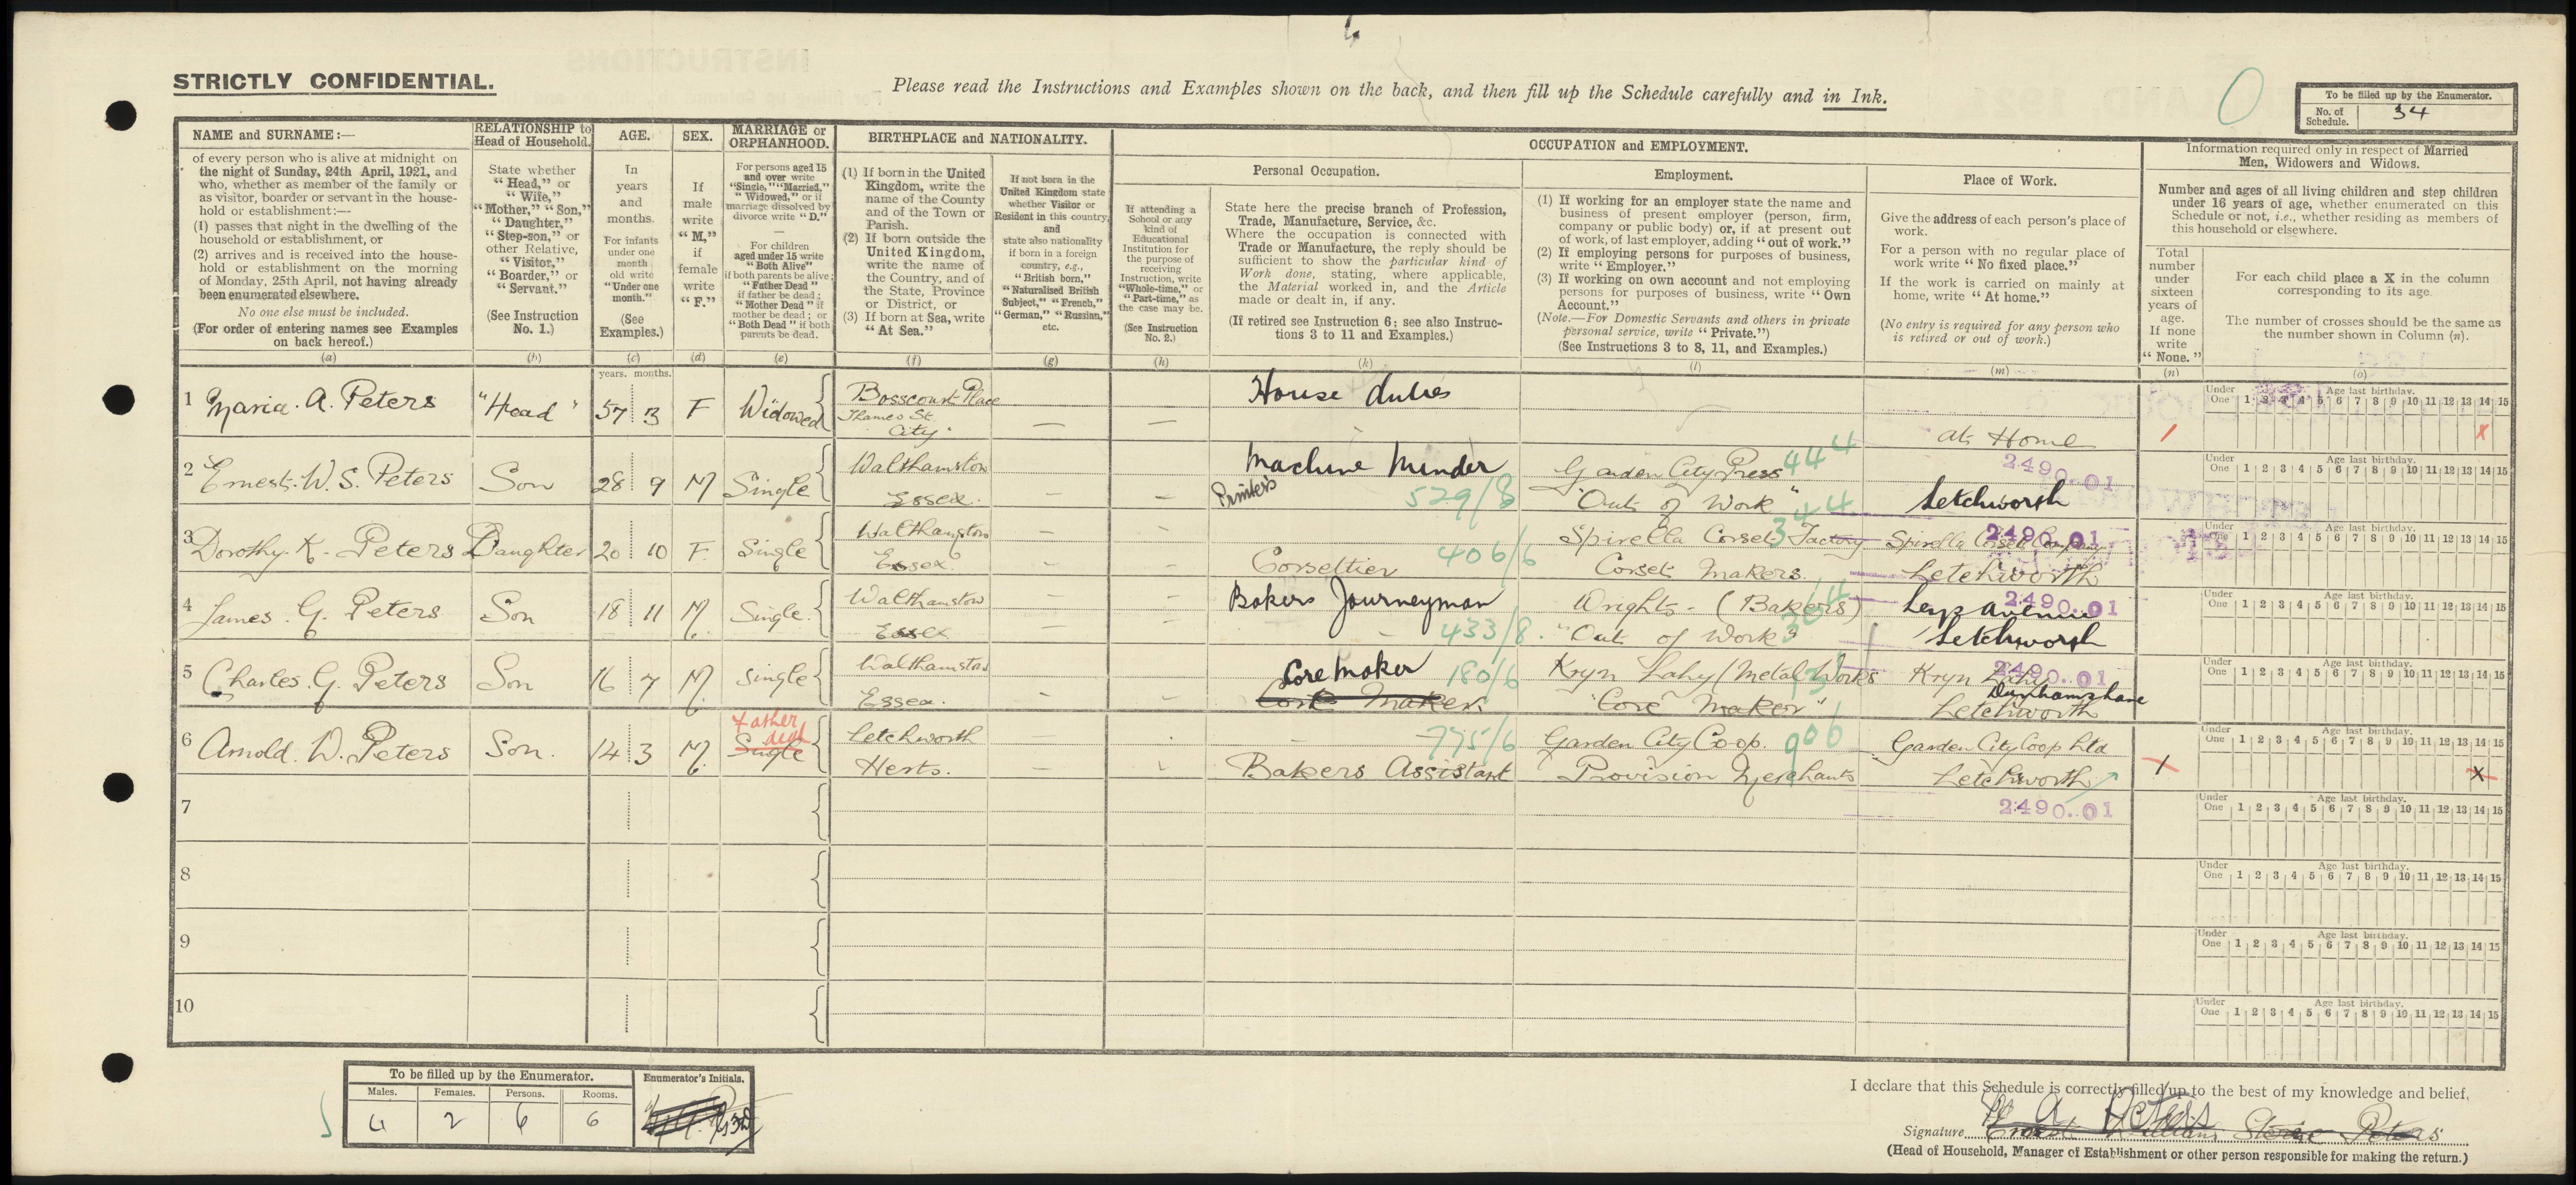 STRICTLY CONFIDENTIAL.
Please read the Instructions and Examples shown on the back, and then fill up the Schedule carefully and in Ink.
To be filled up by the Enumerator.
No. of Schedule. 34
NAME and SURNAME:—
of every person who is alive at midnight on
the night of Sunday, 24th April, 1921, and
who, whether as member of the family or
as visitor, boarder or servant in the house-
hold or establishment:—
(1) passes that night in the dwelling of the
household or establishment, or
(2) arrives and is received into the house-
hold or establishment on the morning
of Monday, 25th April, not having already
been enumerated elsewhere.
No one else must be included.
(For order of entering names see Examples
on back hereof.)
(a)
RELATIONSHIP to
Head of Household.
State whether
"Head," or
"Wife,"
"Mother," "Son,"
"Daughter,"
"Step-son," or
other Relative,
"Visitor,"
"Boarder," or
"Servant."
(See Instruction
No. 1.)
(b)
AGE.
In
years
and
months.
For infants
under one
month
old write
"Under one
month."
(See
Examples.)
(c)
years. months.
SEX.
If
male
write
"M,"
if
female
write
"F."
(d)
MARRIAGE or
ORPHANHOOD.
For persons aged 15
and over write
"Single," "Married,"
"Widowed," or if
marriage dissolved by
divorce write "D."
—
For children
aged under 15 write
"Both Alive"
if both parents be alive;
"Father Dead"
if father be dead;
"Mother Dead" if
mother be dead; or
"Both Dead" if both
parents be dead.
(e)
BIRTHPLACE and NATIONALITY.
(1) If born in the United
Kingdom, write the
name of the County
and of the Town or
Parish.
(2) If born outside the
United Kingdom,
write the name of
the Country, and of
the State, Province
or District, or
(3) If born at Sea, write
"At Sea."
(f)
If not born in the
United Kingdom state
whether Visitor or
Resident in this country,
and
state also nationality
if born in a foreign
country, e.g.,
"British born,"
"Naturalised British
Subject," "French,"
"German," "Russian,"
etc.
(g)
OCCUPATION and EMPLOYMENT.
Personal Occupation.
If attending a
School or any
kind of
Educational
Institution for
the purpose of
receiving
Instruction, write
"Whole-time," or
"Part-time," as
the case may be.
(See Instruction
No. 2.)
(h)
State here the precise branch of Profession,
Trade, Manufacture, Service, &c.
Where the occupation is connected with
Trade or Manufacture, the reply should be
sufficient to show the particular kind of
Work done, stating, where applicable,
the Material worked in, and the Article
made or dealt in, if any.
(If retired see Instruction 6; see also Instruc-
tions 3 to 11 and Examples.)
(k)
Employment.
(1) If working for an employer state the name and
business of present employer (person, firm,
company or public body) or, if at present out
of work, of last employer, adding "out of work."
(2) If employing persons for purposes of business,
write "Employer."
(3) If working on own account and not employing
persons for purposes of business, write "Own
Account."
(Note.—For Domestic Servants and others in private
personal service, write "Private.")
(See Instructions 3 to 8, 11, and Examples.)
(l)
Place of Work.
Give the address of each person's place of
work.
For a person with no regular place of
work write "No fixed place."
If the work is carried on mainly at
home, write "At home."
(No entry is required for any person who
is retired or out of work.)
(m)
Information required only in respect of Married
Men, Widowers and Widows.
Number and ages of all living children and step children
under 16 years of age, whether enumerated on this
Schedule or not, i.e., whether residing as members of
this household or elsewhere.
Total
number
under
sixteen
years of
age.
If none
write
"None."
(n)
For each child place a X in the column
corresponding to its age.
The number of crosses should be the same as
the number shown in Column (n).
(o)
1 Maria. A. Peters "Head" 57 3 F Widowed Bosscourt Place Thames St. City. — — House duties At Home 1 X
2 Ernest. W. S. Peters Son 28 9 M Single Walthamstow Essex. — — Machine Minder Printers 529/8 Garden City Press 444 "Out of Work" Letchworth 2490..01
3 Dorothy. K. Peters Daughter 20 10 F. Single Walthamstow Essex. Corsettier 406/6 Spirella Corset Factory 344 Corset Makers. Spirella Corset Company Letchworth 2490.01
4 James. G. Peters Son 18 11 M. Single. Walthamstow Essex Bakers Journeyman 433/8 Wrights - (Bakers) "Out of Work" Leys Avenue Letchworth 2490..01
5 Charles. G. Peters Son 16 7 M. Single Walthamstow Essex. Core Maker 180/6 Core Maker Kryn Lahy Metal Works "Core Maker" Kryn Lahy Dunhams Lane Letchworth 2490..01
6 Arnold. W. Peters Son. 14 3 M. Single Father dead Letchworth Herts. 775/6 Bakers Assistant Garden City Co-op. 906 Provision Merchants Garden City Coop Ltd Letchworth 1 X
7 2490..01
8
9
10
Under One 1 2 3 4 5 6 7 8 9 10 11 12 13 14 15
Age last birthday.
To be filled up by the Enumerator.
Males. Females. Persons. Rooms.
4 2 6 6
Enumerator's Initials.
I declare that this Schedule is correctly filled up to the best of my knowledge and belief,
M A Peters
Signature Ernest William Peters
(Head of Household, Manager of Establishment or other person responsible for making the return.)